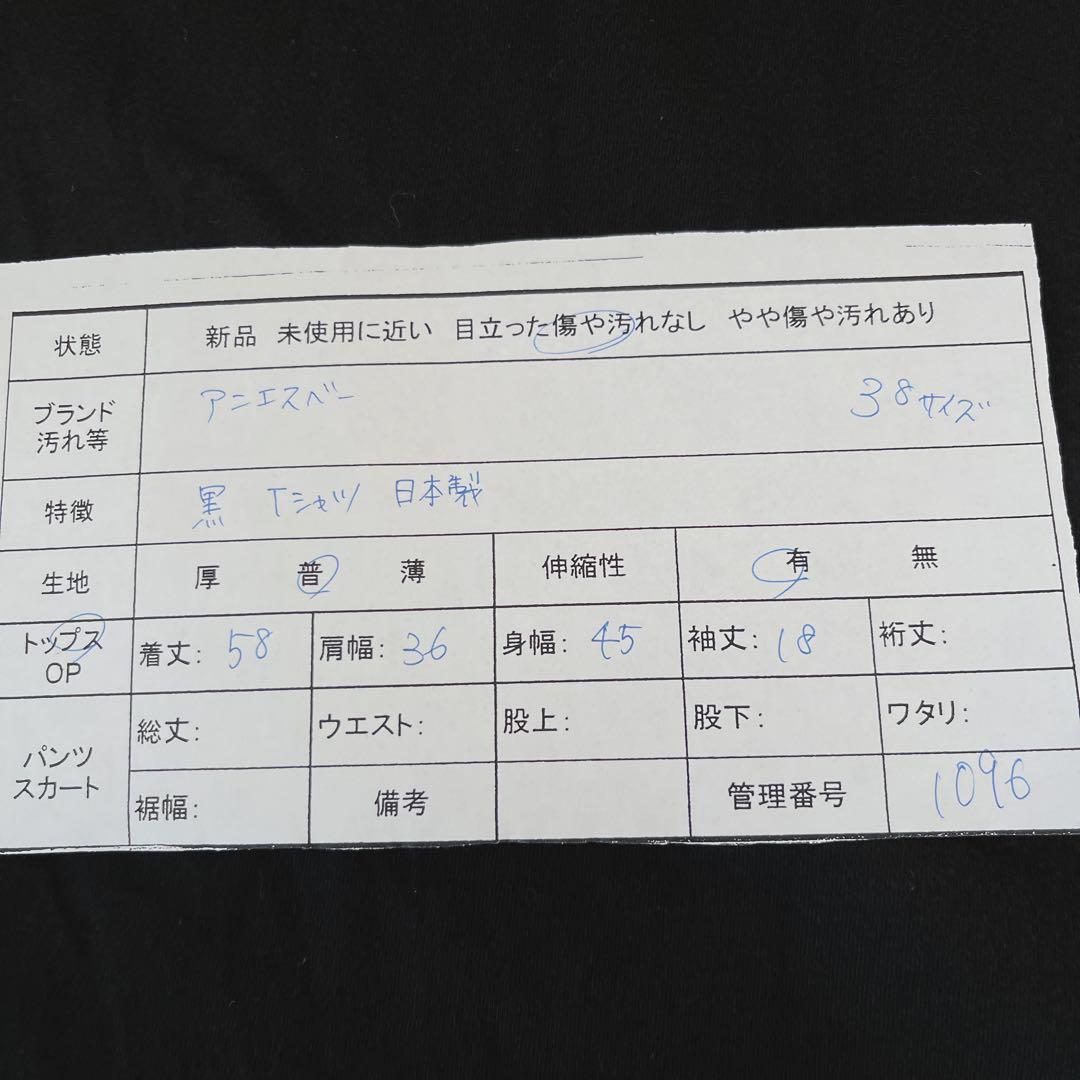 状態 新品 未使用に近い 目立った傷や汚れなし やや傷や汚れあり
ブランド
汚れ等
アニエスベー 38サイズ
特徴 黒 Tシャツ 日本製
生地 厚 普 薄 伸縮性 有 無
トップス
OP
着丈: 58 肩幅: 36 身幅: 45 袖丈: 18 裄丈:
パンツ
スカート
総丈: ウエスト: 股上: 股下: ワタリ:
裾幅: 備考 管理番号 1096